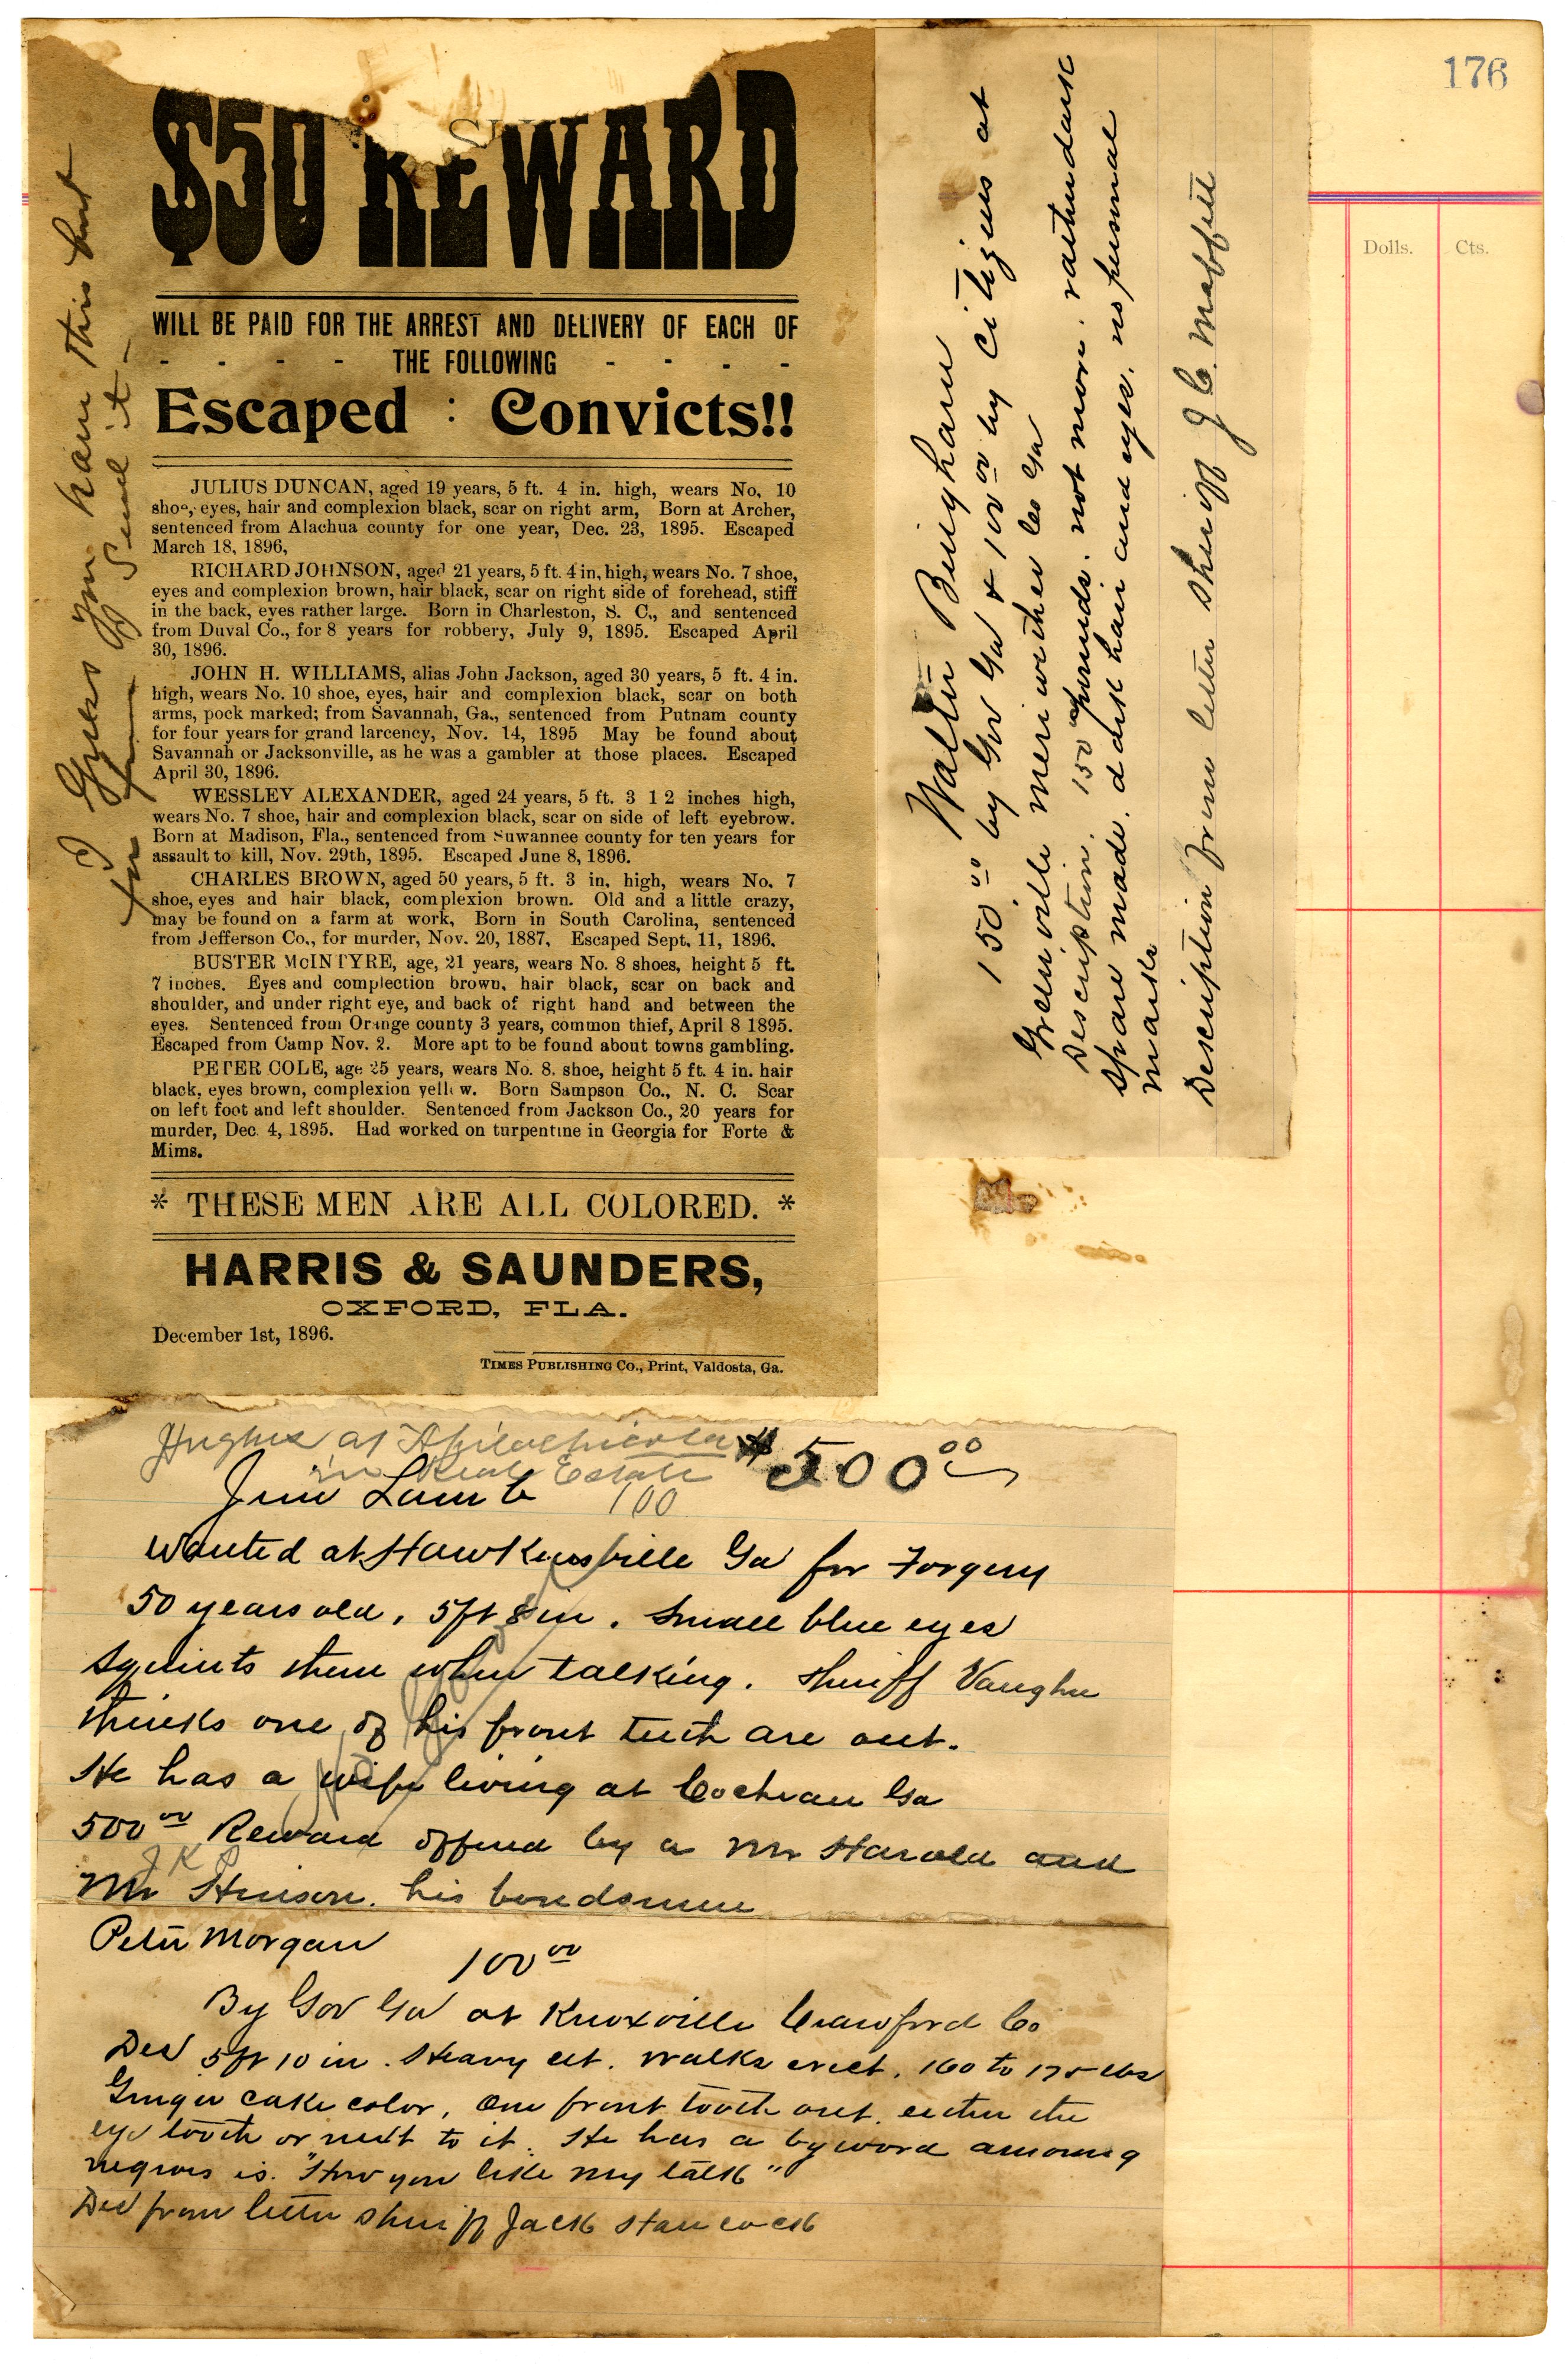 176
Dolls.
Cts.
$50 REWARD
WILL BE PAID FOR THE ARREST AND DELIVERY OF EACH OF
- - - - THE FOLLOWING - - - -
Escaped : Convicts!!
JULIUS DUNCAN, aged 19 years, 5 ft. 4 in. high, wears No, 10
shoe, eyes, hair and complexion black, scar on right arm, Born at Archer,
sentenced from Alachua county for one year, Dec. 23, 1895. Escaped
March 18, 1896,
RICHARD JOHNSON, aged 21 years, 5 ft. 4 in, high, wears No. 7 shoe,
eyes and complexion brown, hair black, scar on right side of forehead, stiff
in the back, eyes rather large. Born in Charleston, S. C., and sentenced
from Duval Co., for 8 years for robbery, July 9, 1895. Escaped April
30, 1896.
JOHN H. WILLIAMS, alias John Jackson, aged 30 years, 5 ft. 4 in.
high, wears No. 10 shoe, eyes, hair and complexion black, scar on both
arms, pock marked; from Savannah, Ga., sentenced from Putnam county
for four years for grand larcency, Nov. 14, 1895 May be found about
Savannah or Jacksonville, as he was a gambler at those places. Escaped
April 30, 1896.
WESSLEY ALEXANDER, aged 24 years, 5 ft. 3 1 2 inches high,
wears No. 7 shoe, hair and complexion black, scar on side of left eyebrow.
Born at Madison, Fla., sentenced from Suwannee county for ten years for
assault to kill, Nov. 29th, 1895. Escaped June 8, 1896.
CHARLES BROWN, aged 50 years, 5 ft. 3 in. high, wears No. 7
shoe, eyes and hair black, complexion brown. Old and a little crazy,
may be found on a farm at work, Born in South Carolina, sentenced
from Jefferson Co., for murder, Nov. 20, 1887, Escaped Sept. 11, 1896.
BUSTER McINTYRE, age, 21 years, wears No. 8 shoes, height 5 ft.
7 inches. Eyes and complection brown, hair black, scar on back and
shoulder, and under right eye, and back of right hand and between the
eyes. Sentenced from Orange county 3 years, common thief, April 8 1895.
Escaped from Camp Nov. 2. More apt to be found about towns gambling.
PETER COLE, age 25 years, wears No. 8. shoe, height 5 ft. 4 in. hair
black, eyes brown, complexion yell w. Born Sampson Co., N. C. Scar
on left foot and left shoulder. Sentenced from Jackson Co., 20 years for
murder, Dec. 4, 1895. Had worked on turpentine in Georgia for Forte &
Mims.
* THESE MEN ARE ALL COLORED. *
HARRIS & SAUNDERS,
OXFORD, FLA.
December 1st, 1896.
TIMES PUBLISHING CO., Print, Valdosta, Ga.
I Guess you have this but
for fun I send it -
Walter Bingham
150 00 by Gov Ga & 100 00 by Citizens at
Greenville Meriwether Co Ga
Description. 150 pounds. not more. rather dark
spare made. dark hair and eyes. no personal
marks
Description from letter sheriff J C. Mabfitt
Hughes at Apilachicola
in Real Estate
$500 00
Jim Lamb 100
Wanted at Hawkinsville Ga for Forgery
50 years old, 5ft 8 in. Small blue eyes
squints them when talking. Sheriff Vaughn
thinks one of his front teeth are out.
He has a wife living at Cochran Ga
500 00 Reward offered by a Mr Harold and
Mr J K P Hinson. his bondsmen
Peter Morgan 100 00
By Gov Ga at Knoxville Crawford Co
Des 5ft 10 in. Heavy set. Walks erect, 160 to 175 lbs
Ginger cake color, One front tooth out. either the
eye tooth or next to it. He has a by word among
negroes is. "How you like my talk"
Des from letter sheriff Jack Hancock